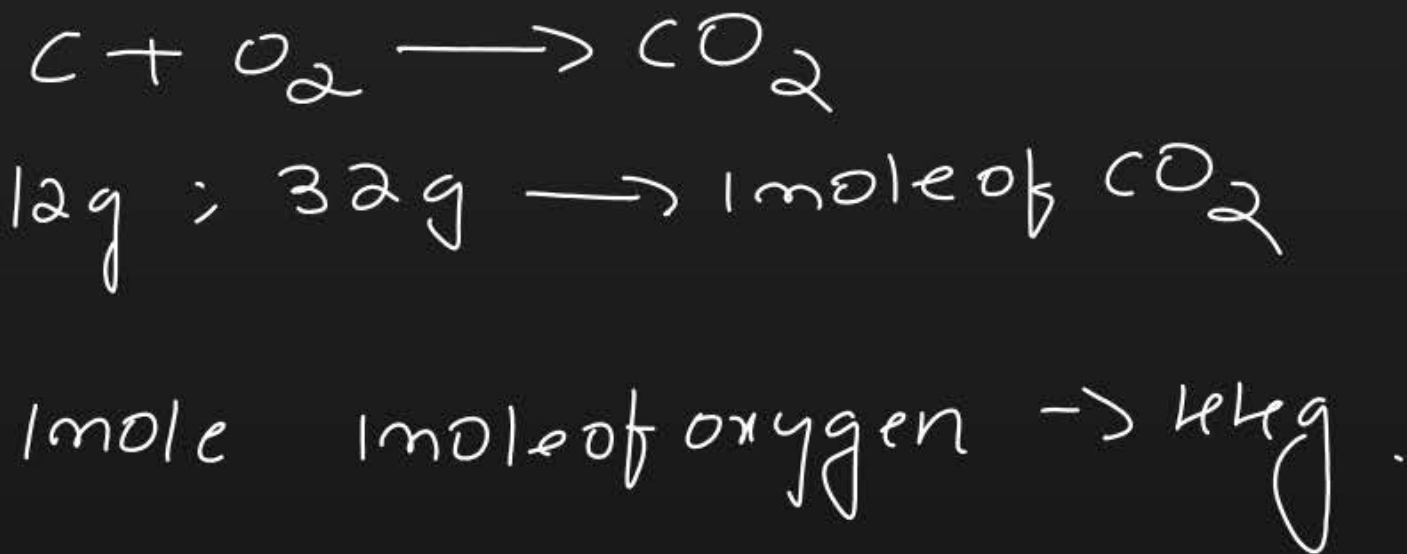 C + O₂ → CO₂
12g ; 32g → 1 mole of CO₂
1mole 1mole of oxygen → 44g.